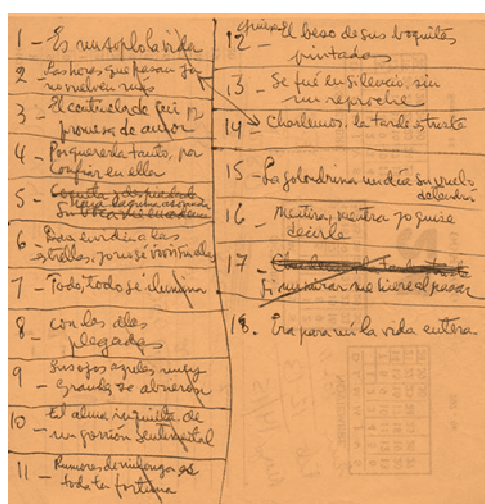 1 - Es un soplo la vida
2 - Las horas que pasan ya
no vuelven mas
3 - El centinela de
promesa de amor
4 - Por quererla tanto, por
confiar en ella
5 - Coqueta y despiadada
6 - Dan envidia a las
estrellas, yo no se vivir sin ellas
7 - Todo, todo se ilumina
8 - con las alas
plegadas
9 - Sus ojos azules muy
grandes se abrieron
10 - El alma inquieta de
un gorrión sentimental
11 - Rumores de milonga es
toda tu fortuna
12 - El beso de sus boquitas
pintadas
13 - Se fué en silencio, sin
un reproche
14 - Charlemos, la tarde es triste
15 - La golondrina un día su vuelo
detendrá
16 - Mentira, mentira yo quise
decirle
17 - Charlemos, la tarde es triste
si su mirar me hiere al pasar
18 - Era para mí la vida entera